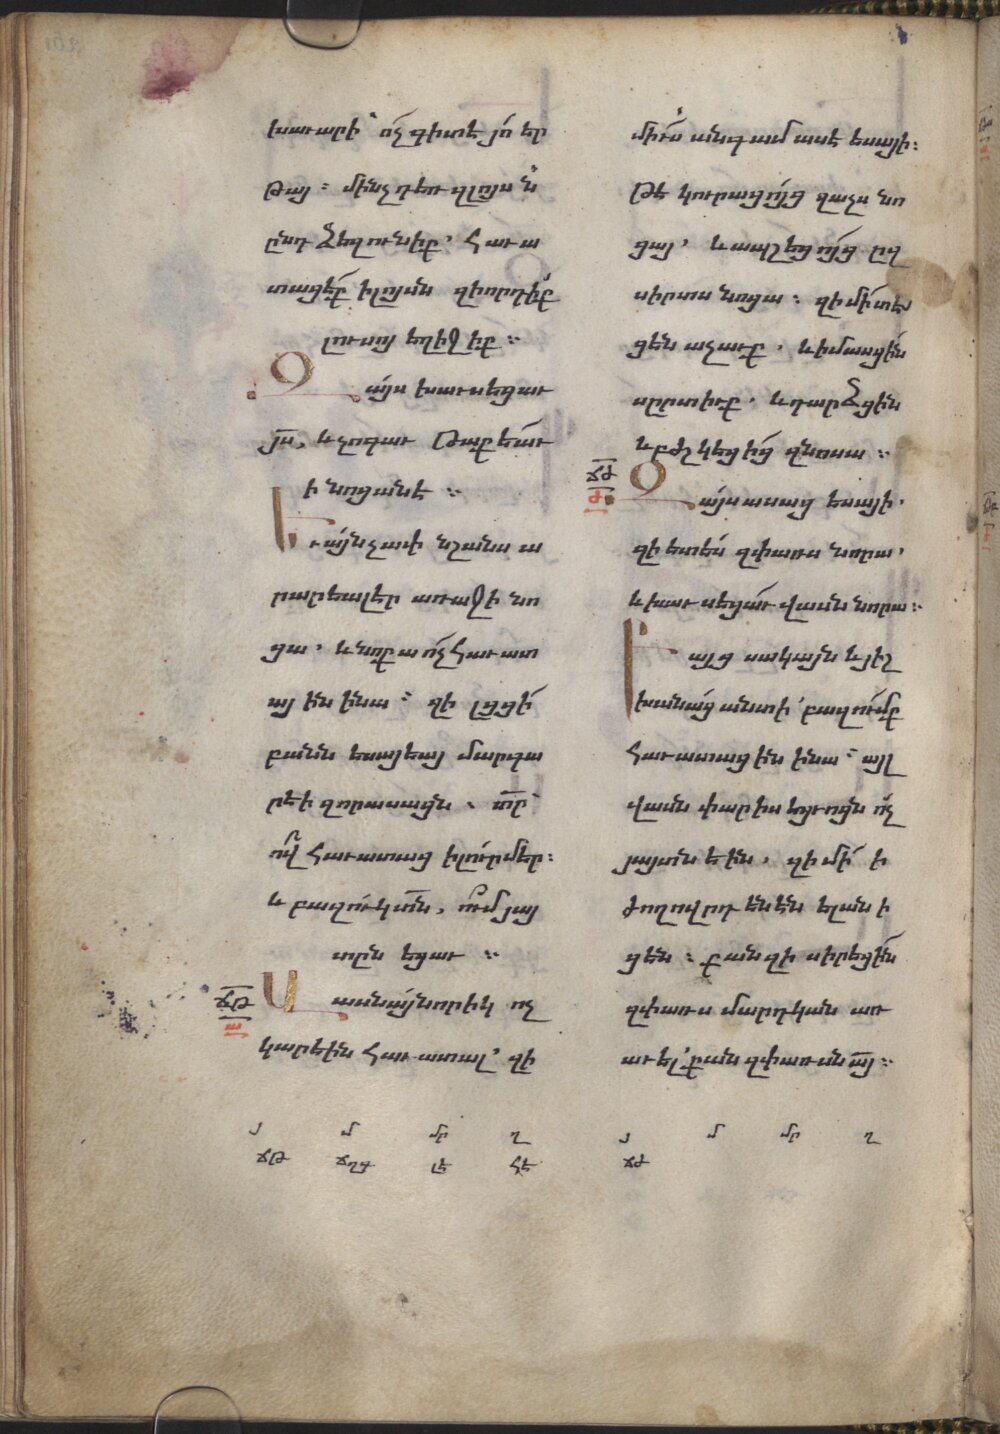 խաւարի՝ ոչ գիտէ յո՛ եր
թայ։ մինչդեռ զլոյսն
ընդ ձեզ ունիք՝ հաւա
տացէ՛ք ի լոյսն զի որդիք
լուսոյ եղիջիք։
Զայս խաւսեցաւ
յս, և չոգաւ թաքեաւ
ի նոցանէ։
Եւ այնչափ նշանս ա
րարեալ էր առաջի նո
ցա, և նոքա ոչ հաւատ
այ ին ի նա։ զի լցցի
բանն եսայեայ մարգա
րէի զոր ասացն, տր՝
ո՞վ հաւատաց ի լուր մեր։
և բազուկ տն, ում յայ
տըն եցաւ։
ՃԹ
Ա
Վասն այնորիկ ոչ
կարէին հաւատալ՝ զի
միւս անգամ ասէ եսայի։
թէ կուրացոյց զաչս նո
ցայ, և ապշեցոյց ըզ
սիրտս նոցա։ զի մի տես
ցեն աչաւք, և իմասցին
սըրտիւք, և դարձցին
և բժշկեցից զնոսա։
ՃԺ
Ժ
Զայս ասաց եսայի,
զի ետես զփառս նորա,
և խաւսեցաւ վասն նորա։
Բայց սակայն և յիշ
խանաց անտի՝ բազումք
հաւատացին ի նա։ այլ
վասն փարիսեցւոցն ոչ
յայտնեին, զի մի՛ ի
ժողովրդենէն ելանի
ցեն։ քանզի սիրեցին
զփառս մարդկան առ
աւել՝ քան զփառսն այ։
յ մ մր ղ
ՃԹ ՃՂԳ ԼԷ ՀԷ
յ մ մր ղ
ՃԺ